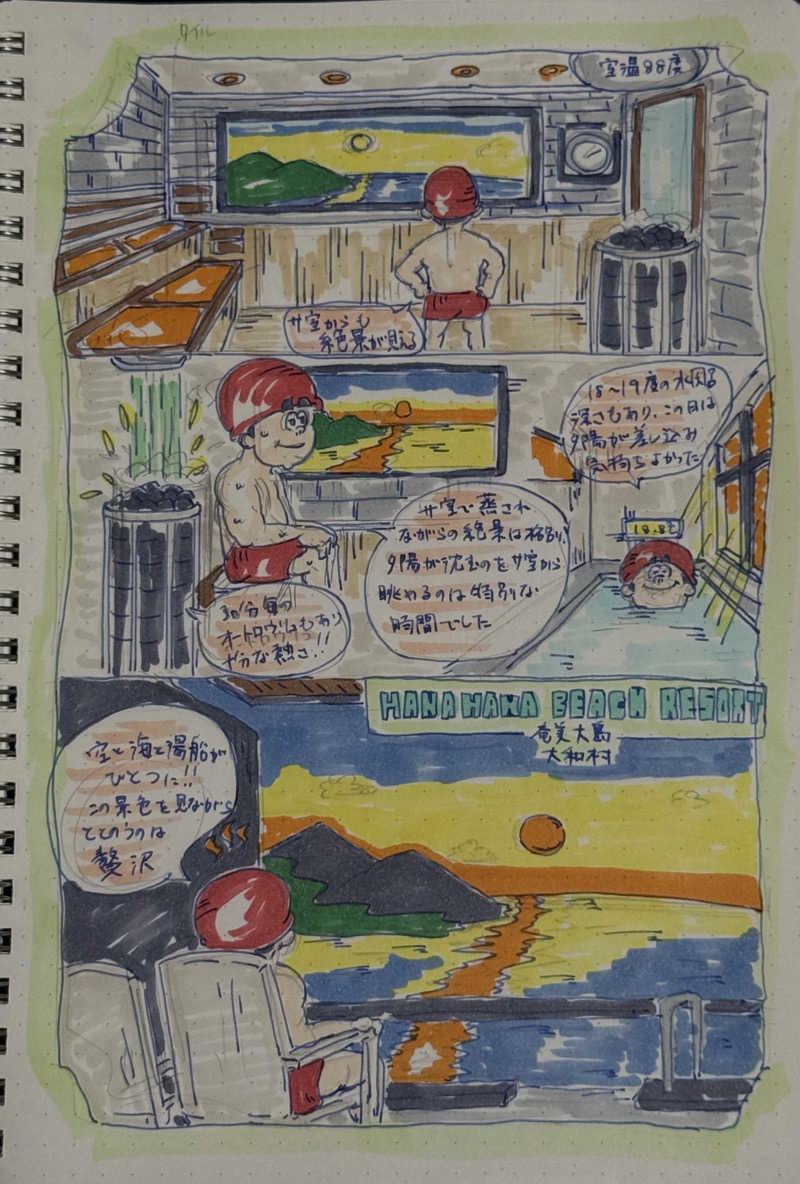 タイル
室温88度
サ室からも
絶景が見える
18〜19度の水風呂
深さもあり、この日は
夕陽が差し込み
気持ちよかった
18.8℃
サ室で蒸され
ながらの絶景は格別、
夕陽が沈むのをサ室から
眺めるのは特別な
時間でした
30分毎の
オートロウリュもあり
十分な熱さ!!
HANAHANA BEACH RESORT
奄美大島
大和村
空と海と湯船が
ひとつに!!
この景色を見ながら
ととのうのは
贅沢